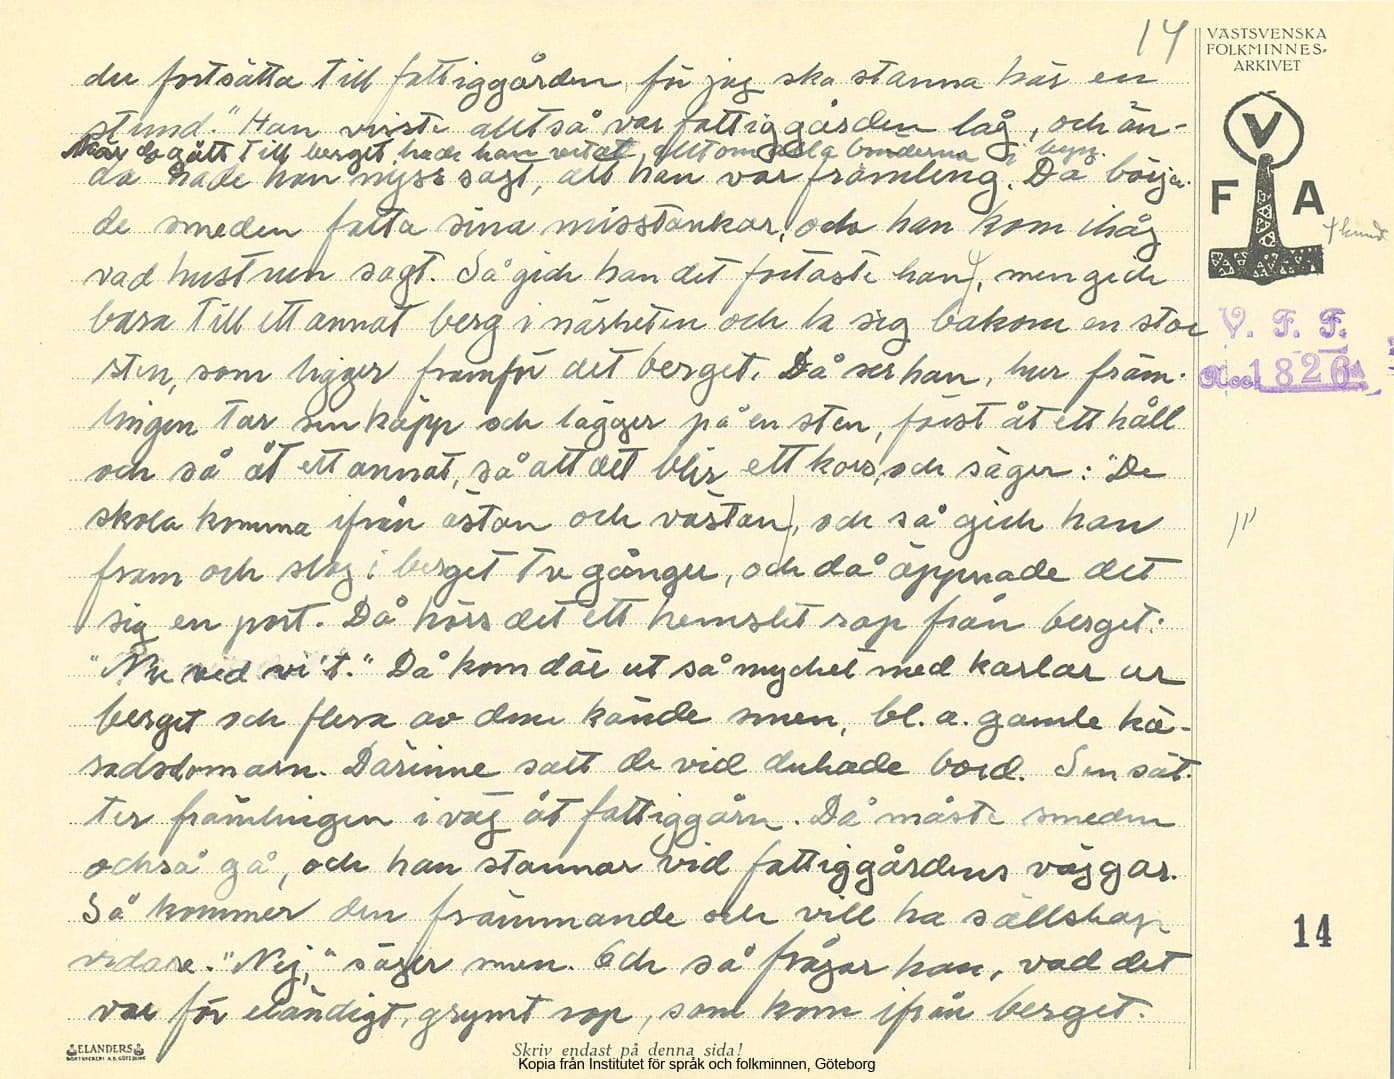 14
VÄSTSVENSKA
FOLKMINNES-
ARKIVET
du fortsätta till fattiggården, för jag ska stanna här en
stund." Han visste alltså var fattiggården låg, och än-
När de gått till berget hade han vetat allt om alla bönderna i byg.
da hade han nyss sagt, att han var främling. Då börja-
de smeden fatta sina misstankar, och han kom ihåg
vad hustrun sagt. Så gick han det fortaste han, men gick
V
F A
bara till ett annat berg i närheten och la sig bakom en stor
V. F. F.
sten, som ligger framför det berget. Då ser han, hur främ-
Acc. 1826
lingen tar sin käpp och lägger på en sten, först åt ett håll
och så åt ett annat, så att det blir ett kors, och säger: "De
skola komma ifrån östan och västan, och så gick han
fram och slog i berget tre gånger, och då öppnade det
sig en port. Då hörs det ett hemskt rop från berget:
"Nu ved vi't." Då kom där ut så mycket med karlar ur
berget och flera av dem kände smen, bl. a. gamle hä-
radsdomarn. Därinne satt de vid dukade bord. Sen sät-
ter främlingen iväg åt fattiggårn. Då måste smeden
också gå, och han stannar vid fattiggårdens väggar.
Så kommer den främmande och vill ha sällskap
14
vidare. "Nej," säger smen. Och så frågar han, vad det
var för eländigt, grymt rop, som kom ifrån berget.
ELANDERS
BOKTRYCKERI A.B. GÖTEBORG
Skriv endast på denna sida!
Kopia från Institutet för språk och folkminnen, Göteborg